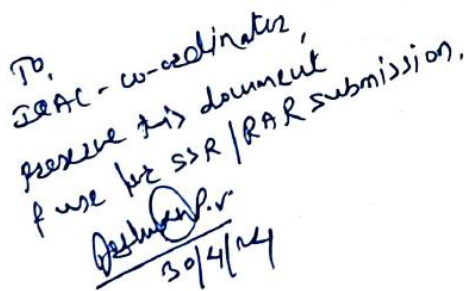 To,
IQAC - co-ordinator,
preserve this document
& use for SSR/RAR submission.
Deshmukh P.V.
30/4/24